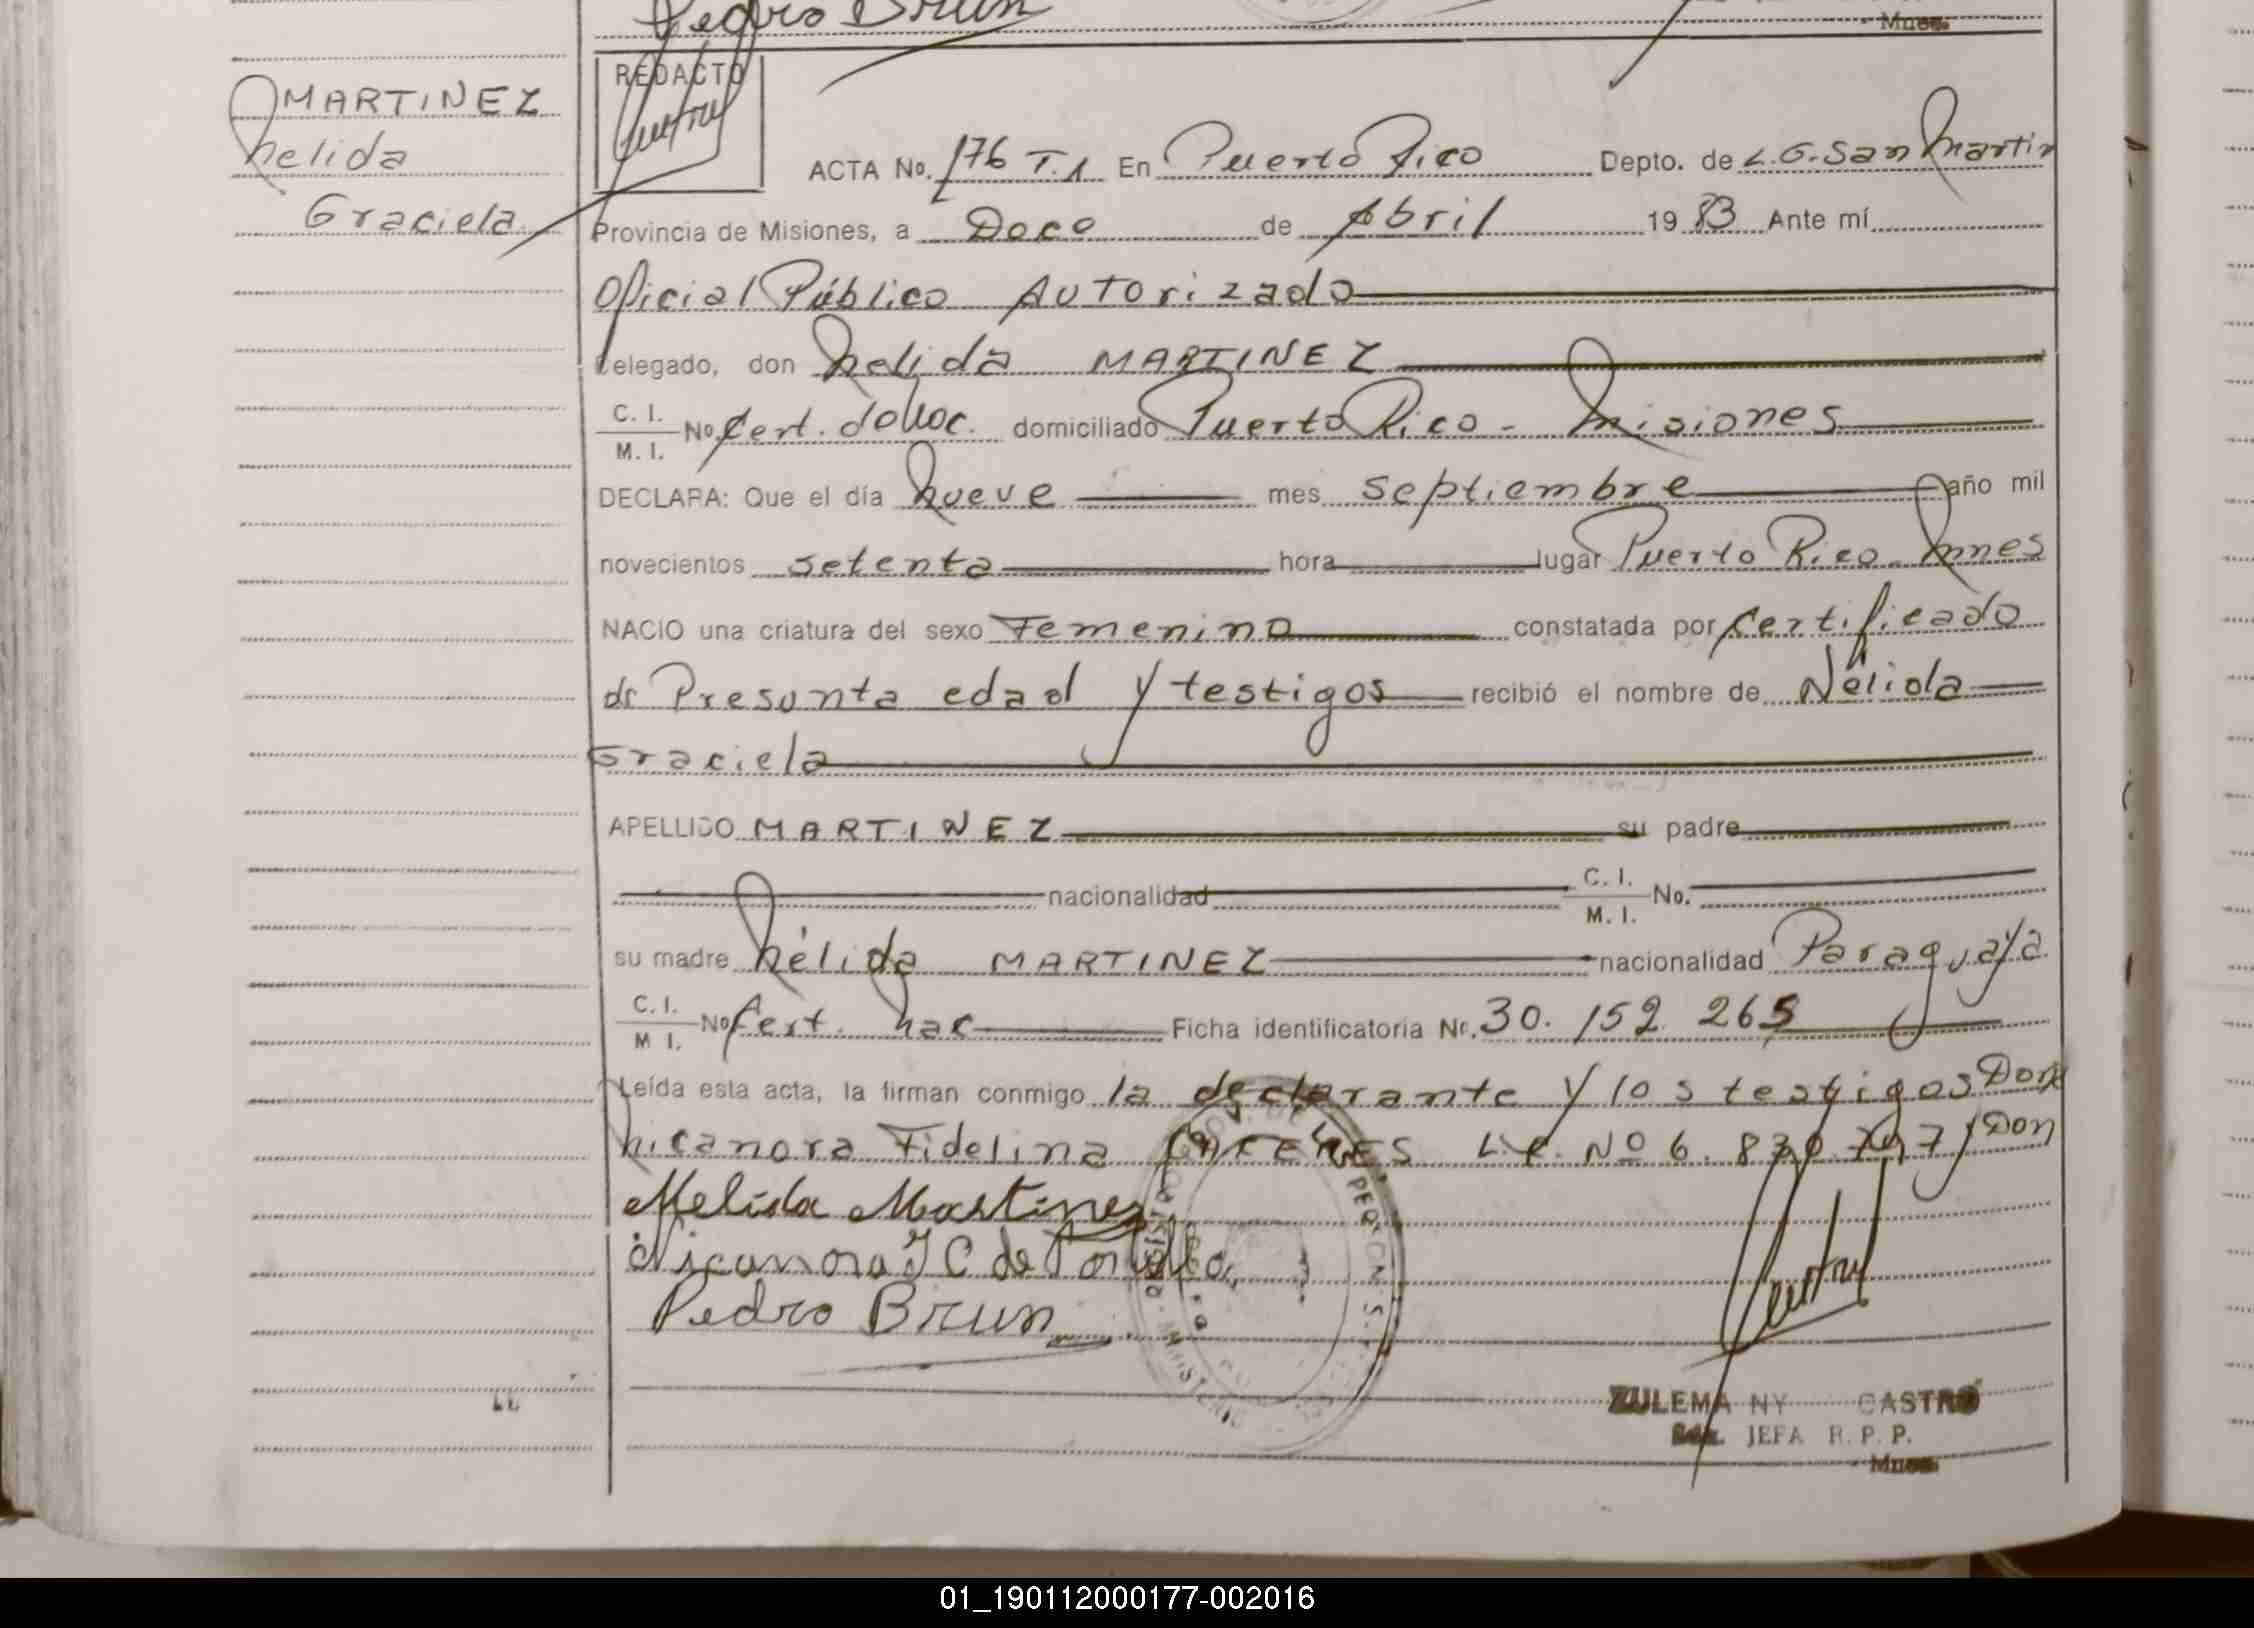 Pedro Brun
Mnes.
REDACTO
MARTINEZ
Nelida
Graciela
ACTA No. 176 T.1 En Puerto Rico Depto. de L.G. San Martin
Provincia de Misiones, a Doce de Abril 1983 Ante mí
Oficial Público Autorizado
Delegado, don Nelida MARTINEZ
C. I.
M. I. No. Cert. domiciliado Puerto Rico - Misiones
DECLARA: Que el día Nueve mes septiembre año mil
novecientos setenta hora lugar Puerto Rico - Mnes
NACIO una criatura del sexo Femenino constatada por Certificado
de Presunta edad y testigos recibió el nombre de Nélida
Graciela
APELLIDO MARTINEZ su padre
nacionalidad C. I. M. I. No.
su madre Nélida MARTINEZ nacionalidad Paraguaya
C. I. M. I. No Cert. Nac Ficha identificatoria No. 30.152.265
Leída esta acta, la firman conmigo la declarante y los testigos Doña
Nicanora Fidelina CACERES L.C. No 6.830. y Don
Nelida Martinez
Nicanora F C de Portillo
Pedro Brun
ZULEMA NY CASTRO
JEFA R. P. P.
Mnes.
01_190112000177-002016